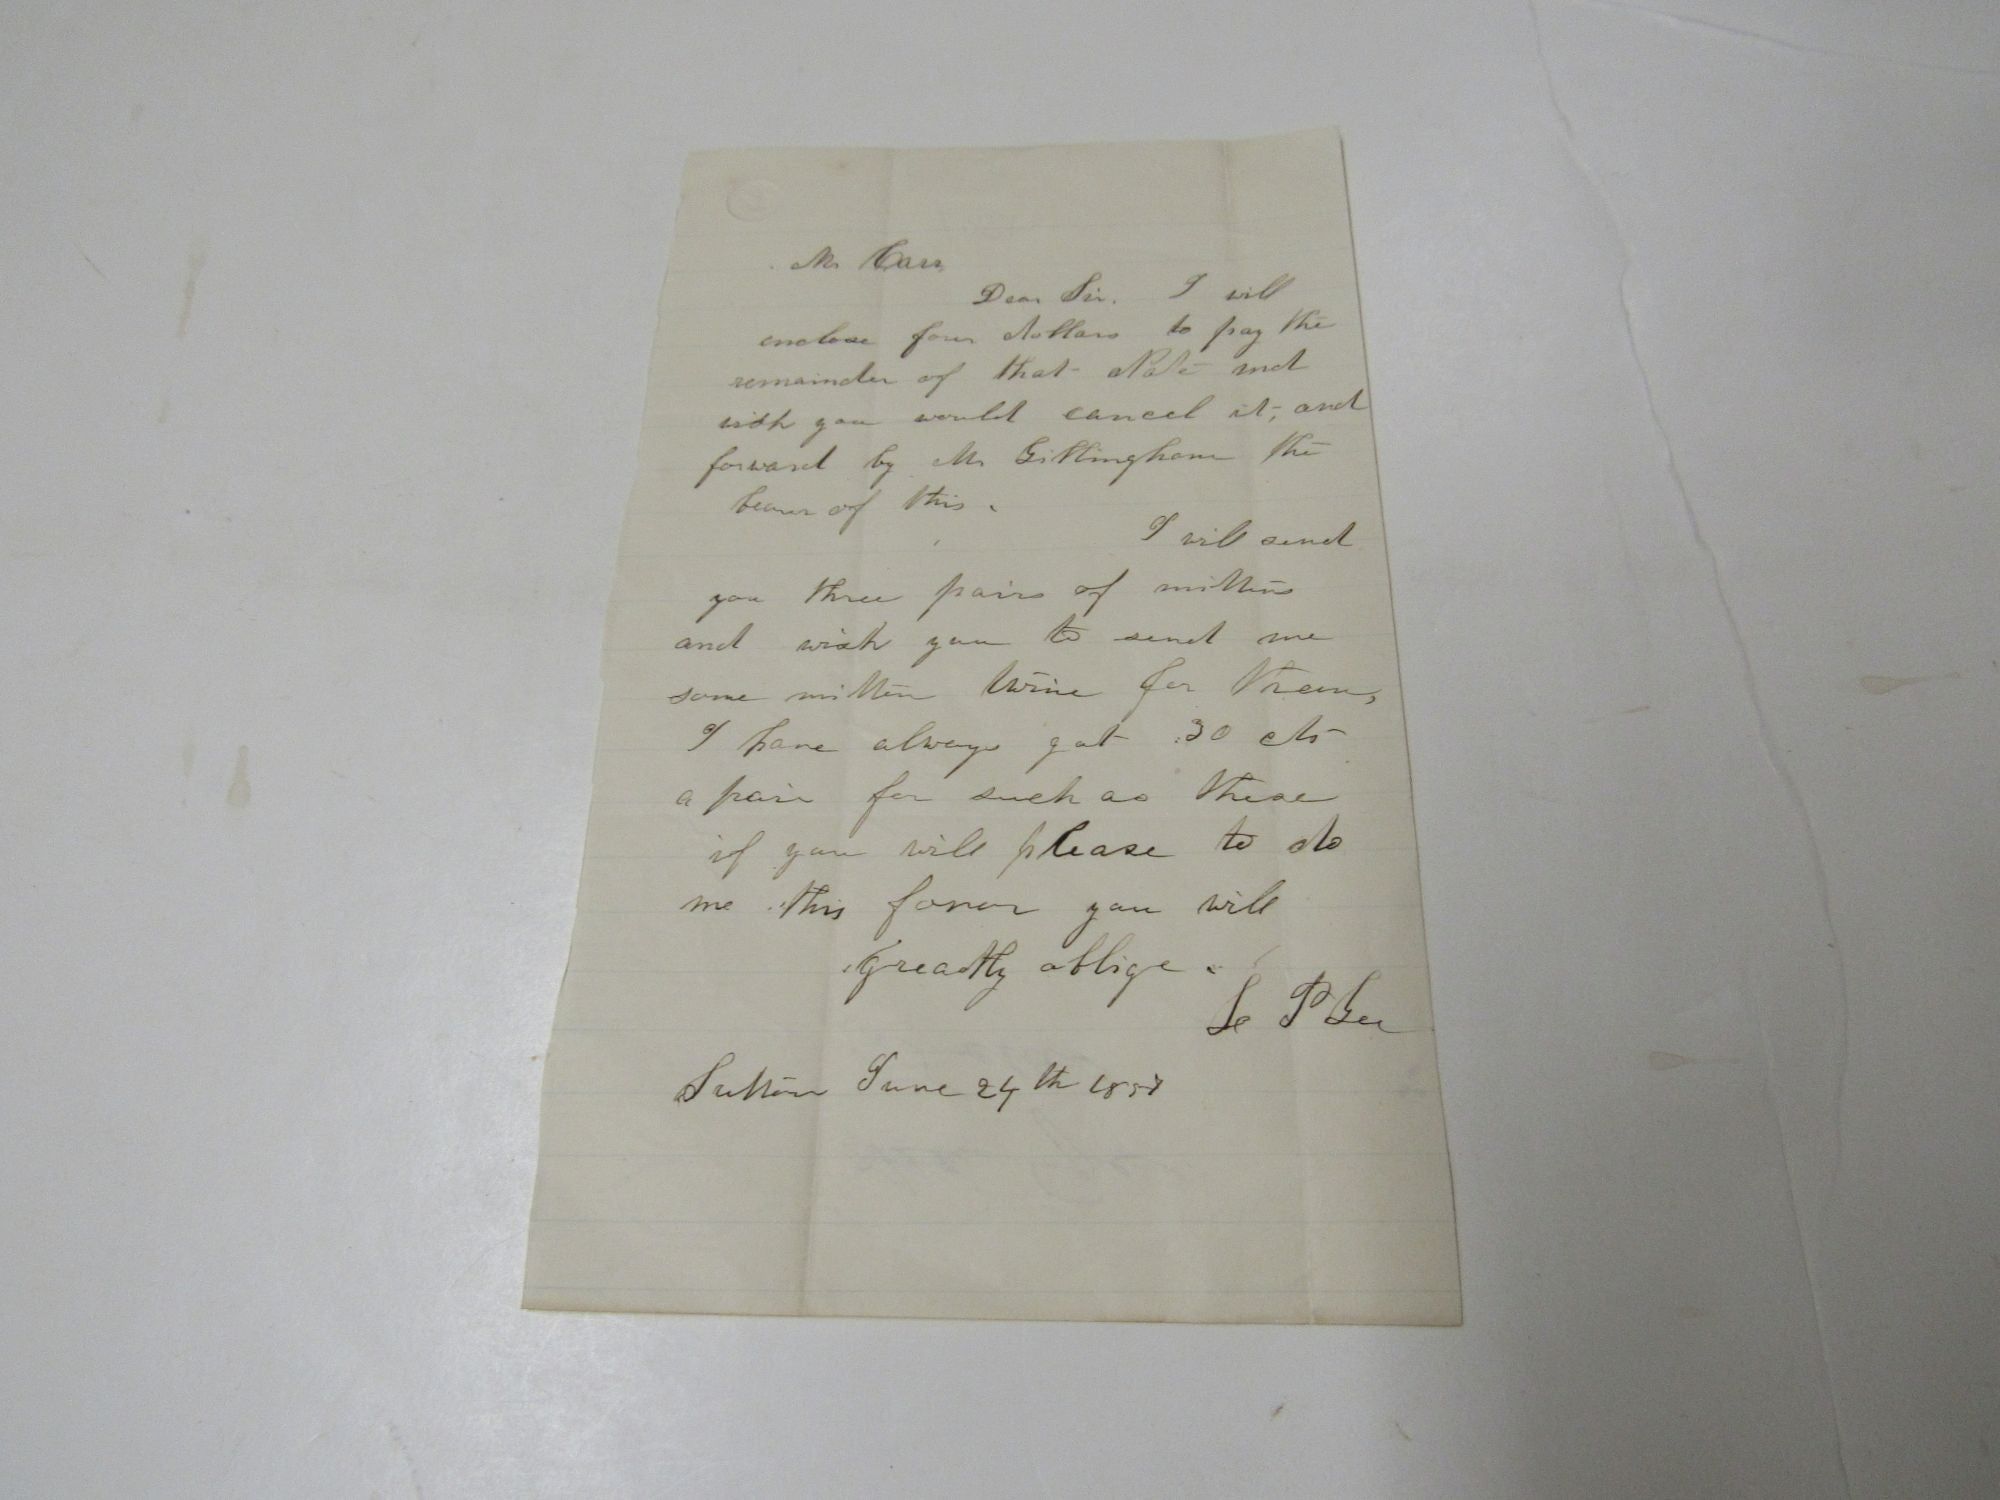 Mr Carr
Dear Sir. I will
enclose four dollars to pay the
remainder of that Note and
wish you would cancel it, and
forward by Mr Gillingham the
bearer of this.
I will send
you three pairs of mittens
and wish you to send me
some mitten twine for them,
I have always got .30 cts
a pair for such as these
if you will please to do
me this favor you will
greatly oblige.
P Gee
Sutton June 24th